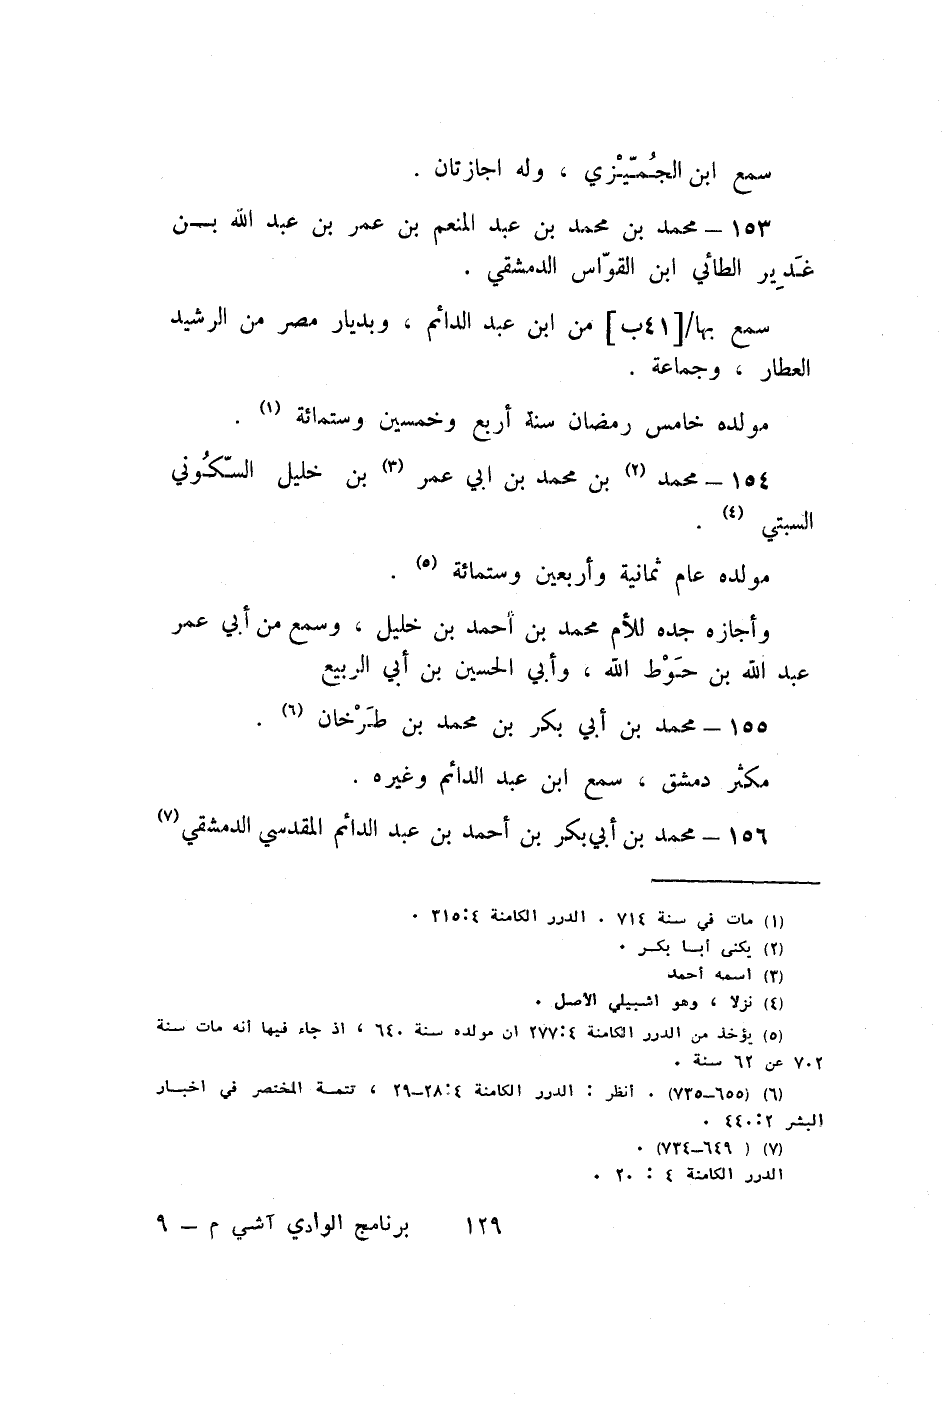 سمع ابن الجُمّيْزي ، وله اجازتان .
١٥٣ ــ محمد بن محمد بن عبد المنعم بن عمر بن عبد الله بــن
غَدِير الطائي ابن القوّاس الدمشقي .
سمع بها/[٤١ب] من ابن عبد الدائم ، وبديار مصر من الرشيد
العطار ، وجماعة .
مولده خامس رمضان سنة أربع وخمسين وستمائة (١) .
١٥٤ ــ محمد (٢) بن محمد بن ابي عمر (٣) بن خليل السّكُوني
السبتي (٤) .
مولده عام ثمانية وأربعين وستمائة (٥) .
وأجازه جده للأم محمد بن أحمد بن خليل ، وسمع من أبي عمر
عبد الله بن حَوْط الله ، وأبي الحسين بن أبي الربيع
١٥٥ ــ محمد بن أبي بكر بن محمد بن طَرْخان (٦) .
مكثر دمشق ، سمع ابن عبد الدائم وغيره .
١٥٦ ــ محمد بن أبي بكر بن أحمد بن عبد الدائم المقدسي الدمشقي (٧)
(١) مات في سنة ٧١٤ . الدرر الكامنة ٤:‏٣١٥ .
(٢) يكنى أبــا بكــر .
(٣) اسمه أحمد
(٤) نزلا ، وهو اشبيلي الأصل .
(٥) يؤخذ من الدرر الكامنة ٤:‏٢٧٧ ان مولده سنة ٦٤٠ ، اذ جاء فيها أنه مات سنة
٧٠٢ عن ٦٢ سنة .
(٦) (٦٥٥ــ٧٣٥) . أنظر : الدرر الكامنة ٤:‏٢٨ــ٢٩ ، تتمـة المختصر في اخبــار
البشر ٢:‏٤٤٠ .
(٧) ( ٦٤٩ــ٧٣٤) .
الدرر الكامنة ٤ : ٢٠ .
١٢٩ برنامج الوادي آشي م ــ ٩